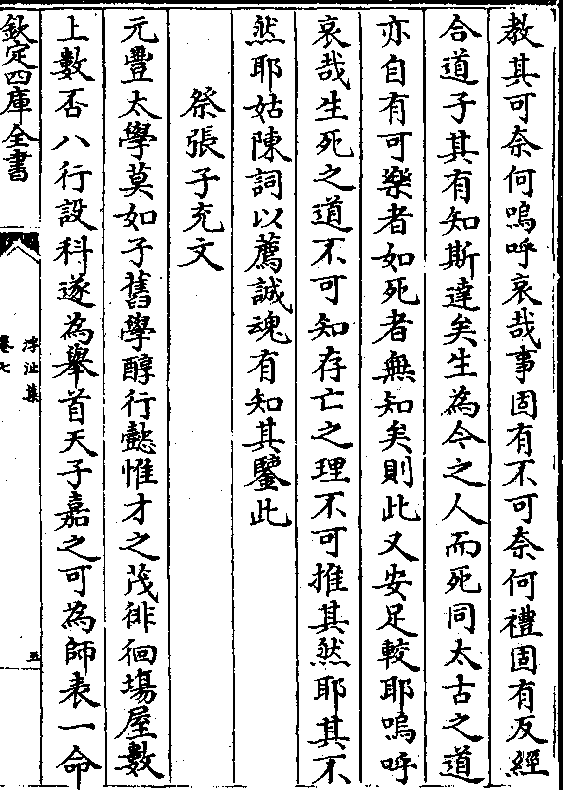 教其可奈何嗚呼哀哉事固有不可奈何禮固有反經
合道子其有知斯達矣生為今之人而死同太古之道
亦自有可樂者如死者無知矣則此又安足較耶嗚呼
哀哉生死之道不可知存亡之理不可推其然耶其不
然耶姑陳詞以薦誠魂有知其鑒此
祭張子充文
元豐太學莫如子舊學醇行懿惟才之茂徘徊場屋數
上數否八行設科遂為舉首天子嘉之可為師表一命
欽定四庫全書
浮沚集
卷七
五